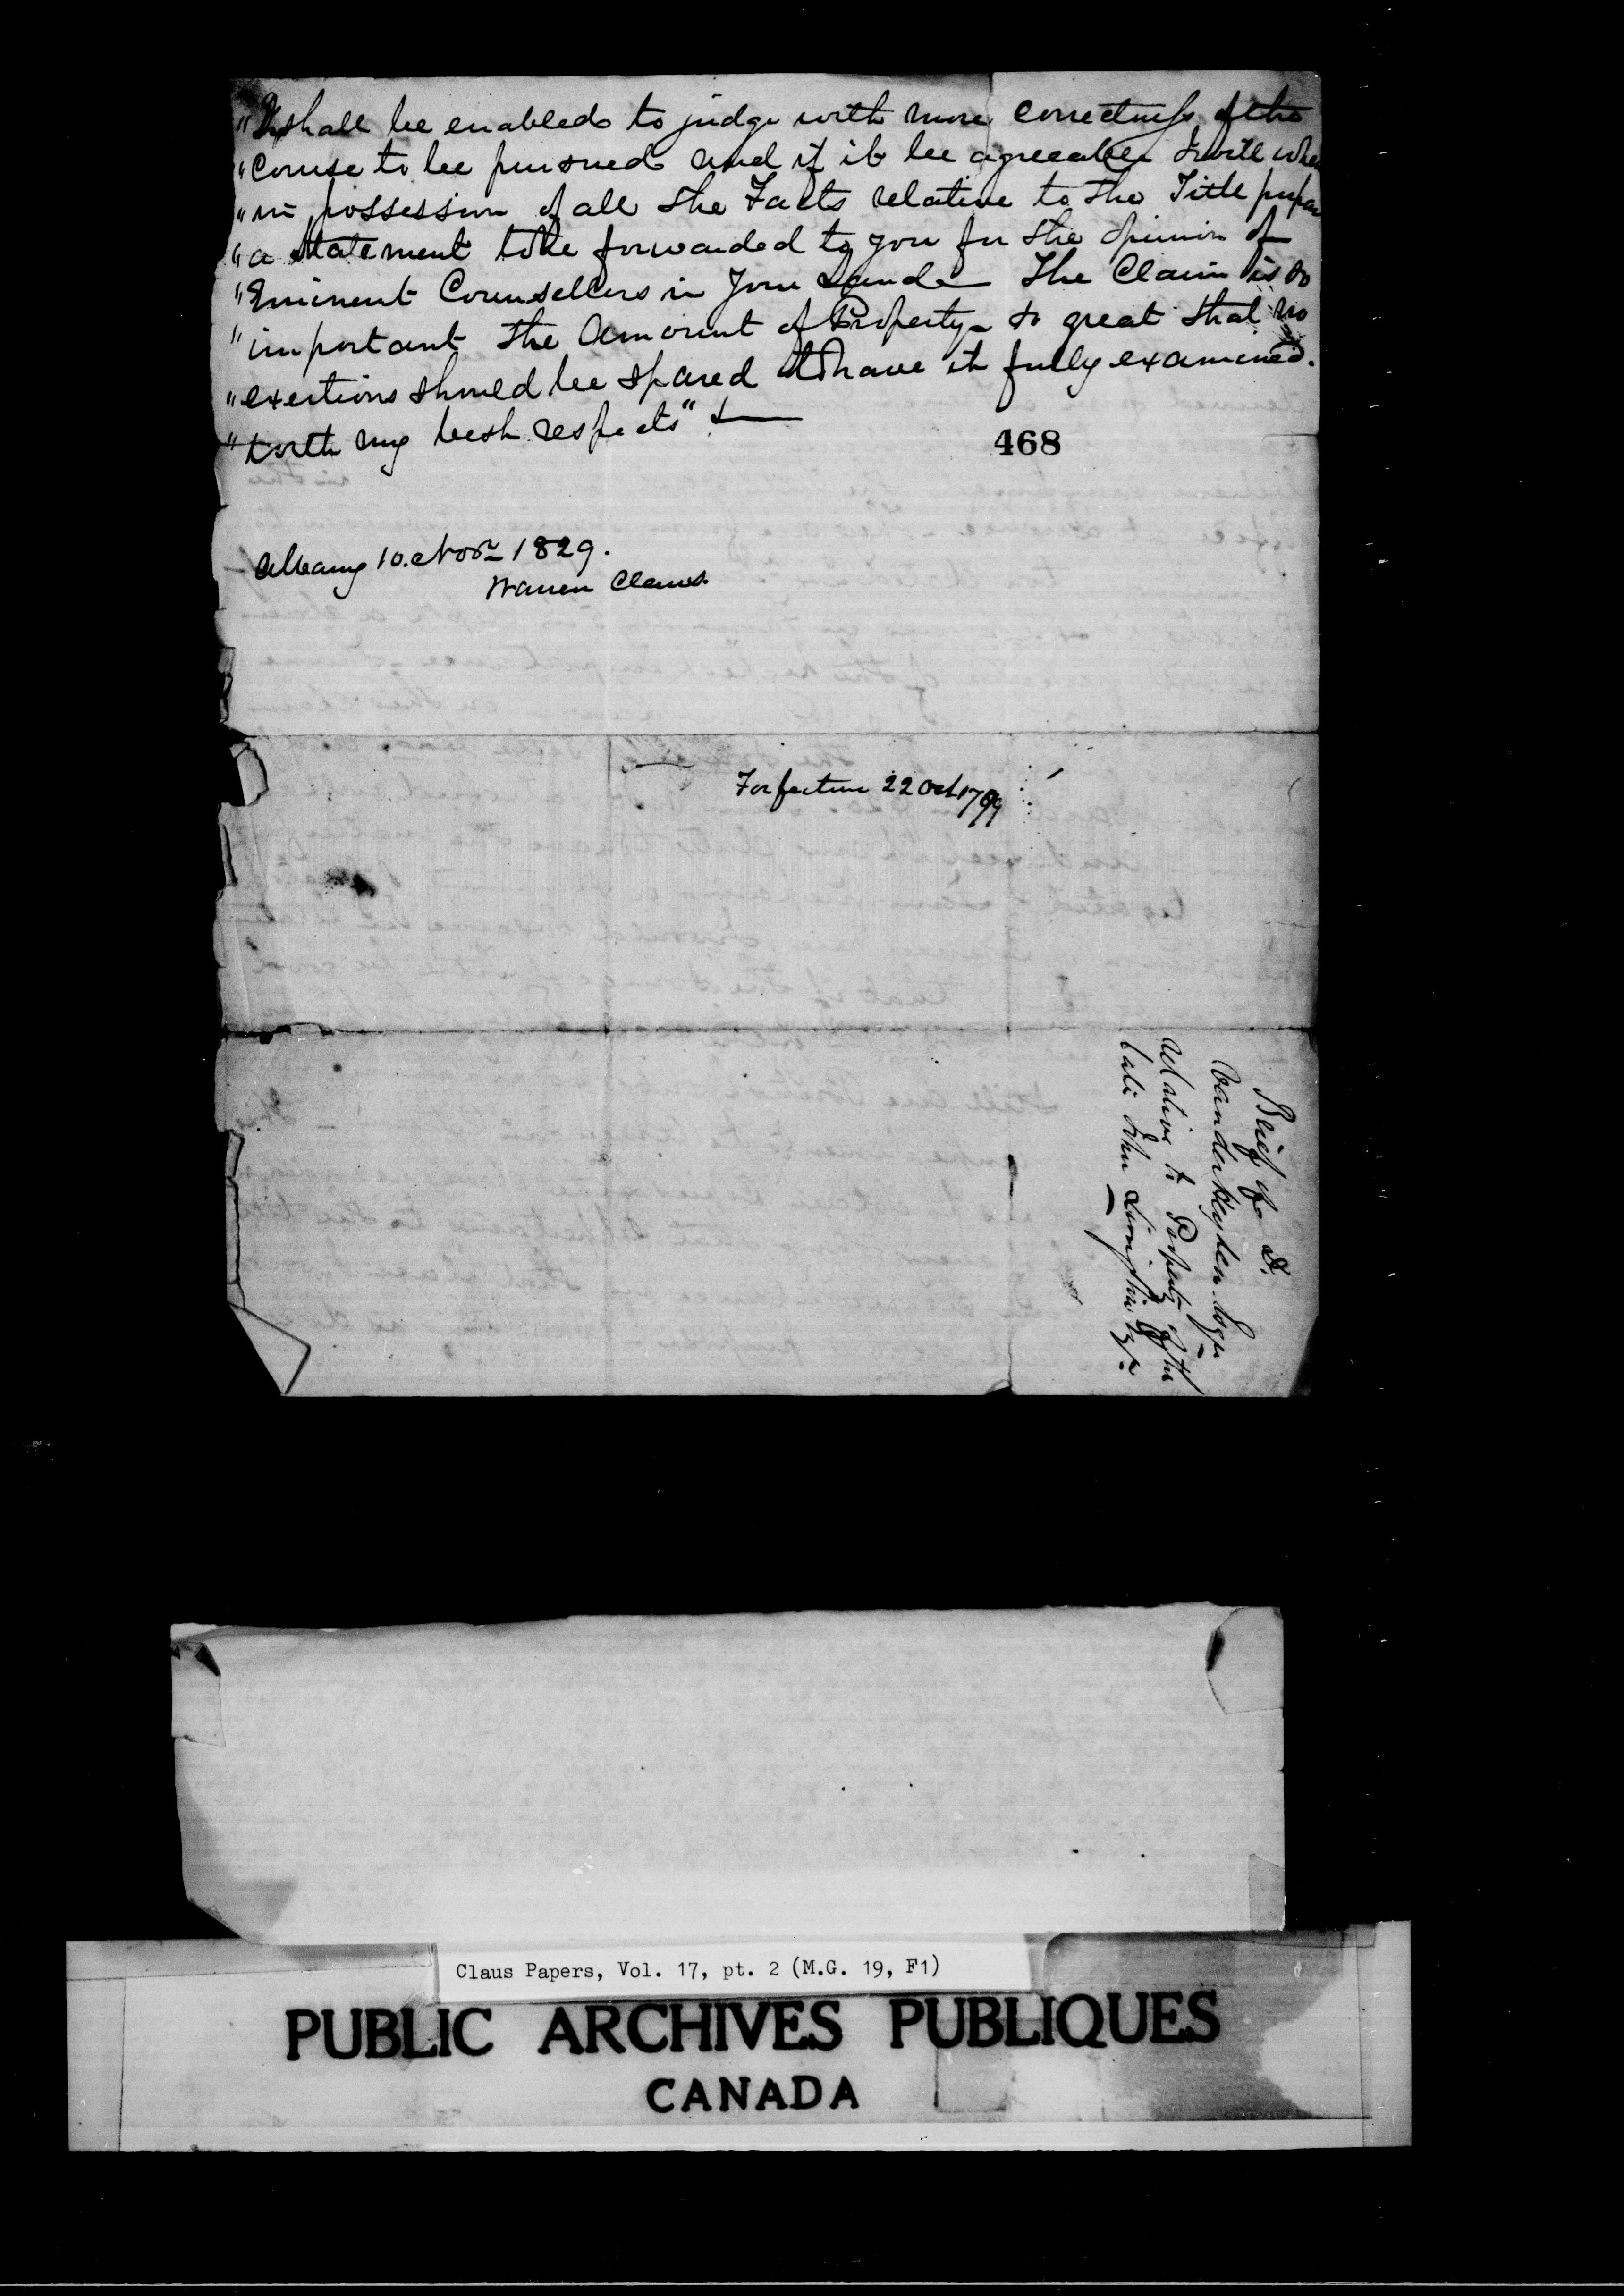 "I shall be enabled to judge with more correctness of the
"Course to be pursued and if it be agreeable I will when
"in possession of all the Facts relative to the Title prepare
"a Statement to be forwarded to you for the Opinion of
"Eminent Counsellors in your Land — The Claim is so
"important the Amount of Property so great that no
"exertions should be spared to have it fully examined.
"With my best respects"
468
Albany 10. Novr 1829.
Warren Claus.
Forfeiture 22 Oct 1799
Brief of
Vanderheyden
relative to Property of the
late John
Claus Papers, Vol. 17, pt. 2 (M.G. 19, F1)
PUBLIC ARCHIVES PUBLIQUES
CANADA